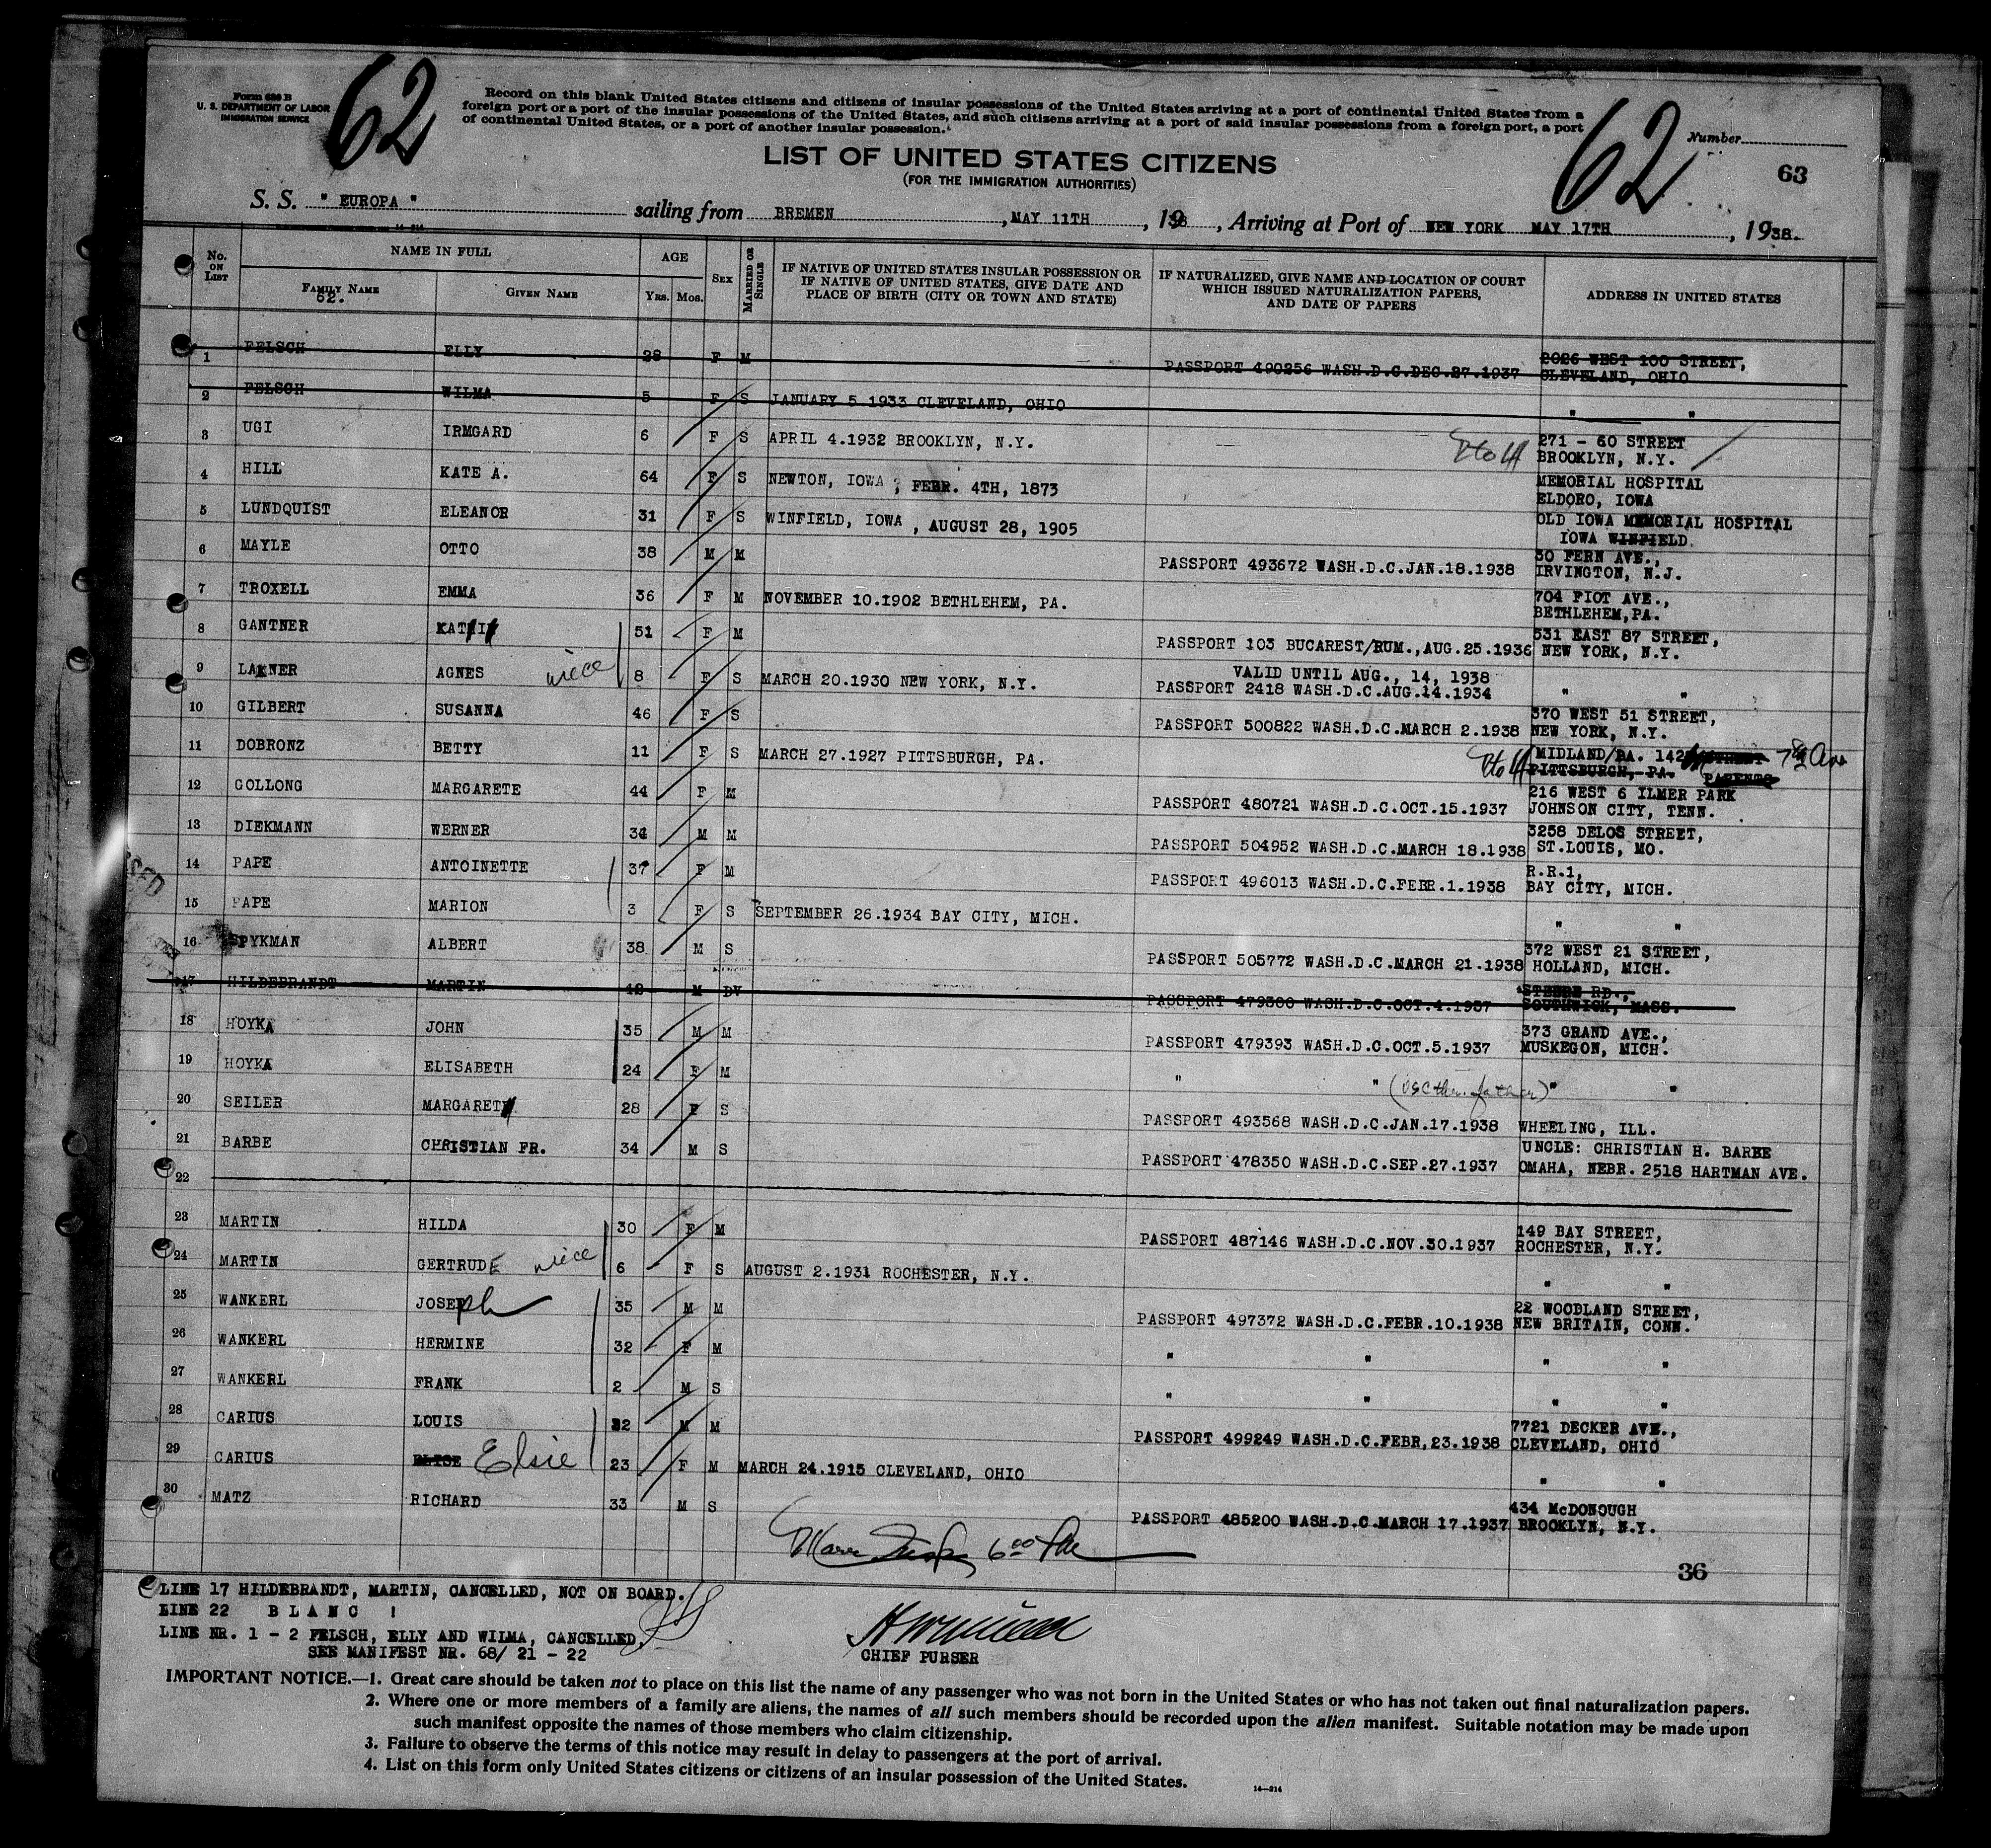 Form 630 B
U. S. DEPARTMENT OF LABOR
IMMIGRATION SERVICE
62
Record on this blank United States citizens and citizens of insular possessions of the United States arriving at a port of continental United States from a
foreign port or a port of the insular possessions of the United States, and such citizens arriving at a port of said insular possessions from a foreign port, a port
of continental United States, or a port of another insular possession.
62
Number
63
LIST OF UNITED STATES CITIZENS
(FOR THE IMMIGRATION AUTHORITIES)
S. S. " EUROPA " sailing from BREMEN , MAY 11TH , 1938 , Arriving at Port of NEW YORK MAY 17TH , 1938.
No. ON LIST NAME IN FULL AGE SEX MARRIED OR SINGLE IF NATIVE OF UNITED STATES INSULAR POSSESSION OR IF NATIVE OF UNITED STATES, GIVE DATE AND PLACE OF BIRTH (CITY OR TOWN AND STATE) IF NATURALIZED, GIVE NAME AND LOCATION OF COURT WHICH ISSUED NATURALIZATION PAPERS, AND DATE OF PAPERS ADDRESS IN UNITED STATES
FAMILY NAME GIVEN NAME YRS. MOS.
62.
1 FELSCH ELLY 28 F M PASSPORT 490256 WASH.D.C.DEC.27.1937 2026 WEST 100 STREET,
CLEVELAND, OHIO
2 FELSCH WILMA 5 F S JANUARY 5.1933 CLEVELAND, OHIO " "
3 UGI IRMGARD 6 F S APRIL 4.1932 BROOKLYN, N.Y. 271 - 60 STREET
BROOKLYN, N.Y.
4 HILL KATE A. 64 F S NEWTON, IOWA , FEBR. 4TH, 1873 MEMORIAL HOSPITAL
ELDORO, IOWA
5 LUNDQUIST ELEANOR 31 F S WINFIELD, IOWA , AUGUST 28, 1905 OLD IOWA MEMORIAL HOSPITAL
IOWA WINFIELD.
6 MAYLE OTTO 38 M M PASSPORT 493672 WASH.D.C.JAN.18.1938 30 FERN AVE.,
IRVINGTON, N.J.
7 TROXELL EMMA 36 F M NOVEMBER 10.1902 BETHLEHEM, PA. 704 FIOT AVE.,
BETHLEHEM,PA.
8 GANTNER KATI 51 F M PASSPORT 103 BUCAREST/RUM.,AUG.25.1936 531 EAST 87 STREET,
NEW YORK, N.Y.
9 LAKNER AGNES niece 8 F S MARCH 20.1930 NEW YORK, N.Y. VALID UNTIL AUG., 14, 1938
PASSPORT 2418 WASH.D.C.AUG.14.1934 " "
10 GILBERT SUSANNA 46 F S PASSPORT 500822 WASH.D.C.MARCH 2.1938 370 WEST 51 STREET,
NEW YORK, N.Y.
11 DOBRONZ BETTY 11 F S MARCH 27.1927 PITTSBURGH, PA. MIDLAND/PA. 142 STREET Ave
PITTSBURGH, PA. PARENTS
12 GOLLONG MARGARETE 44 F M PASSPORT 480721 WASH.D.C.OCT.15.1937 216 WEST 6 ILMER PARK
JOHNSON CITY, TENN.
13 DIEKMANN WERNER 34 M M PASSPORT 504952 WASH.D.C.MARCH 18.1938 3258 DELOS STREET,
ST.LOUIS, MO.
14 PAPE ANTOINETTE 37 F M PASSPORT 496013 WASH.D.C.FEBR.1.1938 R.R.1,
BAY CITY, MICH.
15 PAPE MARION 3 F S SEPTEMBER 26.1934 BAY CITY, MICH. " "
16 SPYKMAN ALBERT 38 M S PASSPORT 505772 WASH.D.C.MARCH 21.1938 372 WEST 21 STREET,
HOLLAND, MICH.
17 HILDEBRANDT MARTIN 42 M DV PASSPORT 479300 WASH.D.C.OCT.4.1937 STEERE RD.,
SOUTHWICK, MASS.
18 HOYKA JOHN 35 M M PASSPORT 479393 WASH.D.C.OCT.5.1937 373 GRAND AVE.,
MUSKEGON, MICH.
19 HOYKA ELISABETH 24 F M " " (USC thr. father) " "
20 SEILER MARGARET 28 F S PASSPORT 493568 WASH.D.C.JAN.17.1938 WHEELING, ILL.
21 BARBE CHRISTIAN FR. 34 M S PASSPORT 478350 WASH.D.C.SEP.27.1937 UNCLE: CHRISTIAN H. BARBE
OMAHA, NEBR. 2518 HARTMAN AVE.
22
23 MARTIN HILDA 30 F M PASSPORT 487146 WASH.D.C.NOV.30.1937 149 BAY STREET,
ROCHESTER, N.Y.
24 MARTIN GERTRUDE niece 6 F S AUGUST 2.1931 ROCHESTER, N.Y. " "
25 WANKERL JOSEph 35 M M PASSPORT 497372 WASH.D.C.FEBR.10.1938 22 WOODLAND STREET,
NEW BRITAIN, CONN.
26 WANKERL HERMINE 32 F M " " " "
27 WANKERL FRANK 2 M S " " " "
28 CARIUS LOUIS 32 M M PASSPORT 499249 WASH.D.C.FEBR,23.1938 7721 DECKER AVE.,
CLEVELAND, OHIO
29 CARIUS ELISE Elsie 23 F M MARCH 24.1915 CLEVELAND, OHIO " "
30 MATZ RICHARD 33 M S PASSPORT 485200 WASH.D.C.MARCH 17.1937 434 McDONOUGH
BROOKLYN, N.Y.
36
LINE 17 HILDEBRANDT, MARTIN, CANCELLED, NOT ON BOARD.
LINE 22 B L A N C !
LINE NR. 1 - 2 FELSCH, ELLY AND WILMA, CANCELLED,
SEE MANIFEST NR. 68/ 21 - 22
CHIEF PURSER
IMPORTANT NOTICE.—1. Great care should be taken not to place on this list the name of any passenger who was not born in the United States or who has not taken out final naturalization papers.
2. Where one or more members of a family are aliens, the names of all such members should be recorded upon the alien manifest. Suitable notation may be made upon
such manifest opposite the names of those members who claim citizenship.
3. Failure to observe the terms of this notice may result in delay to passengers at the port of arrival.
4. List on this form only United States citizens or citizens of an insular possession of the United States.
14—214